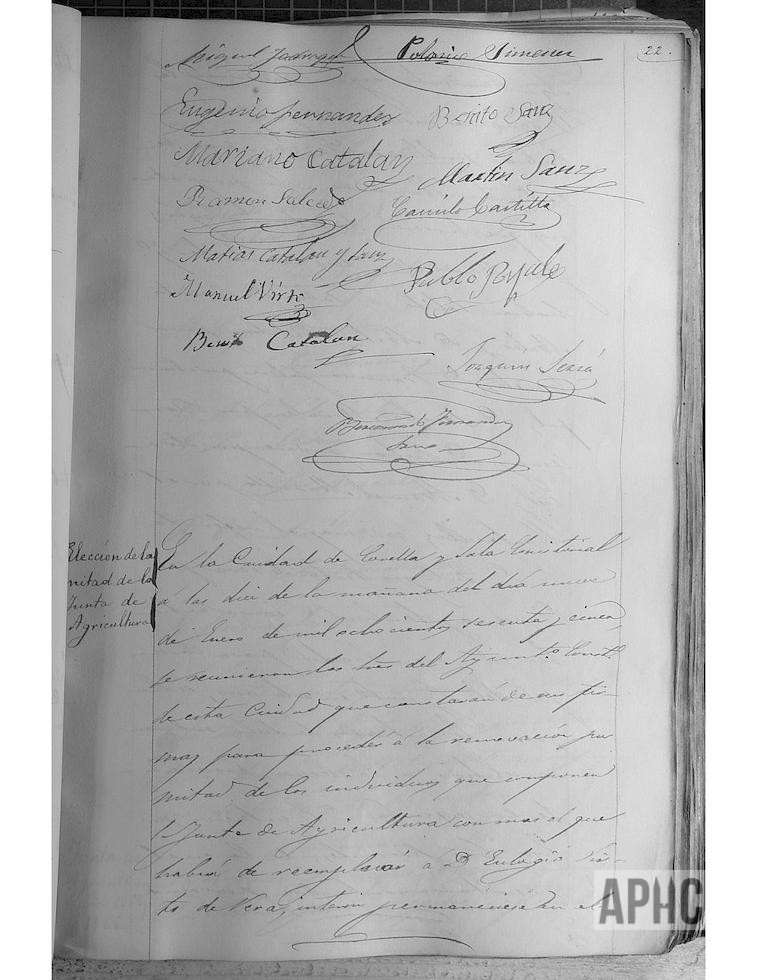 Miguel Polonio Ximenez
22.
Eugenio Fernandez Benito Sanz
Mariano Catalan
Martin Sanz
Ramon Salcedo Camilo Castilla
Matias Catalan y Sanz
Manuel Virto Pablo
Benito Catalan
Joaquin
Fernandez
Elección de la
mitad de la
Junta de
Agricultura
En la Ciudad de Corella y Sala Consistorial
á las diez de la mañana del dia nueve
de Enero de mil ochocientos sesenta y cinco
se reunieron los Sres del Ayunt.º Const.l
de esta Ciudad que constarán de sus fir-
mas para proceder á la renovación por
mitad de los individuos que componen
la Junta de Agricultura con mas el que
habrá de reemplazar á D Eulogio Vir-
to de Vera, interin permaneciese en el
APHC